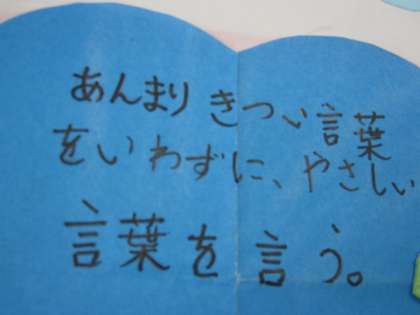 あんまりきつい言葉
をいわずに、やさしい
言葉を言う。